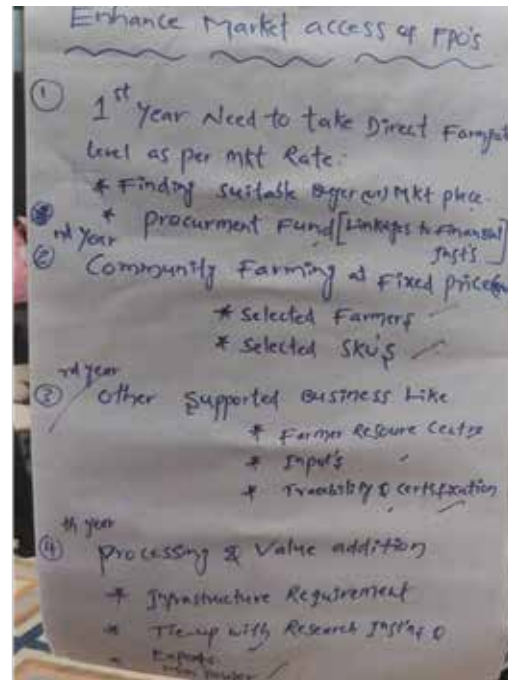 Enhance Market access of FPO's
① 1st Year Need to take Direct
level as per mkt Rate.
* Finding suitable Buyer (or) Mkt place.
* Procurment Fund [Linkages to Financial
Inst's]
② nd Year Community Farming at Fixed price
* Selected Farmers
* Selected SKU'S
③ rd year Other Supported Business Like
* Farmer Resoure Centre
* Input's
* Traceability & certification
④ th year Processing & Value addition
* Infrastructure Requirement
* Tie-up with Research
* Experts
Man power